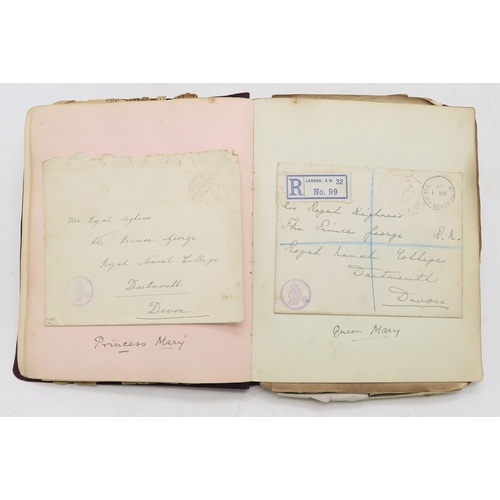 His Royal Highness
The Prince George
Royal Naval College
Dartmouth
Devon.
Princess Mary
R
LONDON, S.W. 32
No. 99
His Royal Highness
The Prince George R.N.
Royal Naval College
Dartmouth
Devon
Queen Mary